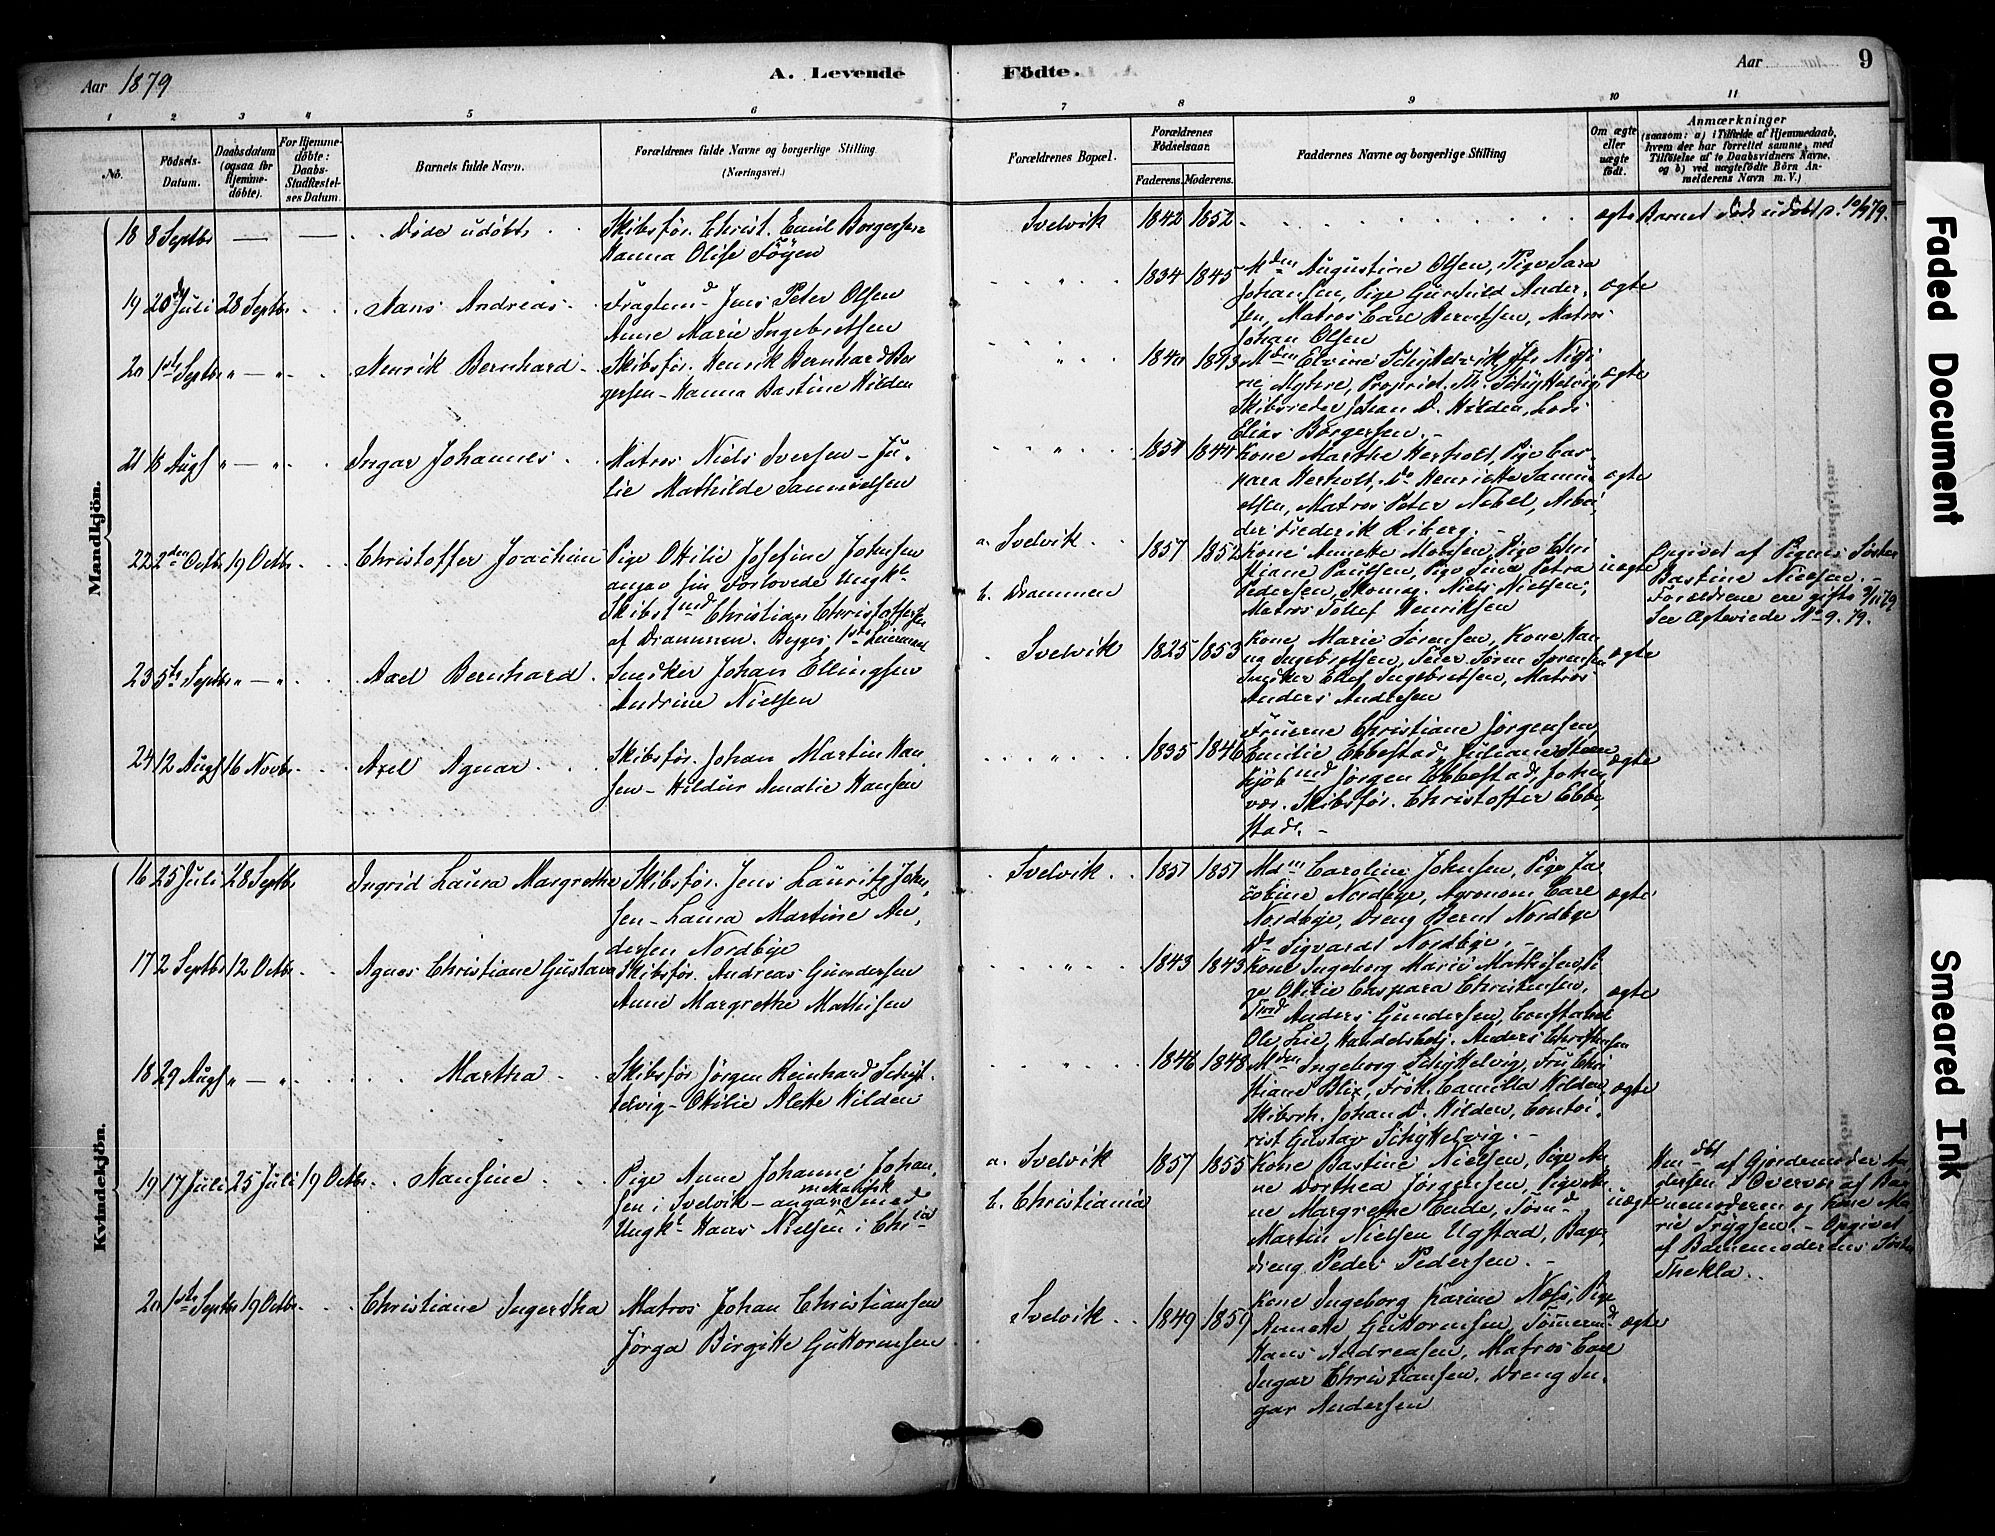 Aar 1879
A. Levende
Födte.
Aar
9
1 2 3 4 5 6 7 8 9 10 11
No.
Födsels-
Datum.
Daabsdatum
(ogsaa for
Hjemme-
døbte).
For Hjemme-
döbte:
Daabs-
Stadfæstel-
ses Datum.
Barnets fulde Navn.
Forældrenes fulde Navne og borgerlige Stilling
(Næringsvei.)
Forældrenes Bopæl.
Forældrenes
Födselsaar.
Faderens. Moderens.
Faddernes Navne og borgerlige Stilling
Om ægte
eller
uægte
födt.
Anmærkninger
(saasom: a) i Tilfælde af Hjemmedaab,
hvem der har forrettet samme, med
Tilföielse af to Daabsvidners Navne,
og b) ved uægtefödte Börn An-
melderens Navn m. V.)
Mandkjön.
18 8 Septbr — — Döde udöbt
Skibsför. Christ. Emil Borgersen
Hanna Olise Föyen
Svelvik 1842 1852
ægte Barnet död udöbt
19 20de Juli 28 Septbr Hans Andreas
Jens Peter Olsen
Anne Marie Ingebretsen
" 1834 1845
Augustine Olsen, Pige Sara
Johansen, Pige Gunhild Ander-
sen, Matros Carl Berntsen, Matros
Johan Olsen
ægte
20 1ste Septbr " — " Henrik Bernhard
Skibsför. Henrik Bernhard Bor
gersen - Hanna Bastine Hilden
"
Skibsreder Johan D. Hilden,
Elias Borgersen. -
ægte
21 18 Augst " — " Ingar Johannes
Matros Niels Iversen - Ju-
lie Mathilde Samuelsen
" 1844
Kone Marthe Herholt, Pige Cas-
para Herholt, Do Henriette Samu
elsen, Matros Peter Nebel, Arbei
der Frederik Riberg. -
ægte
22 2den Octbr 19 Octbr Christoffer Joachim
Pige Ottilie Josefine Johnsen
angav sin Forlovede Ungk.
Christian Christoffersen
af Drammen. Begges 1ste Leiermaal
a. Svelvik
b. Drammen
1857 1852
Kone Annette Madsen, Pige Chri
stiane Paulsen, Pige Sina Petra
Pedersen, Skomag. Niels Nielsen,
Matros Tollef Henriksen
uægte
Opgivet af Pigens Söster
Bastine Nielsen. -
Forældrene ere gifte 9/11 79
See Ægteviede No 9. 79.
23 5te Septbr " — " Axel Bernhard
Snedker Johan Ellingsen
Andrine Nielsen
Svelvik 1825 1853
Kone Marie Sörensen, Kone Han
na Ingebretsen, Feier Sören Sörensen
Snedker Ellef Ingebretsen, Matros
Anders Andersen
ægte
24 12 Augst 16 Novbr Axel Agnar
Skibsför. Johan Martin Han
sen - Hildur Amalie Hansen
" 1835 1846
Fruerne Christiane Jörgensen
Emilie Ebbestad, Juliane Steen
Kjöbmd Jörgen Ebbestad, Johan
Skibsför. Christoffer Ebbe
stad. -
ægte
Kvindekjön.
16 25 Juli 28 Septbr Ingrid Laura Margrethe
Skibsför. Jens Lauritz John,
sen - Laura Martine An,
dersen Nordbye
Svelvik 1851 1851
Mdm Caroline Johnsen, Pige Ja
cobine Nordbye, Agronom Carl
Nordbye, Dreng Bernt Nordbye
Do Sigvardt Nordbye. -
ægte
17 2 Septbr 12 Octbr Agnes Christiane Gustava
Skibsför. Andreas Gundersen
Anne Margrethe Mathisen
" 1843 1843
Kone Ingeborg Marie Mathisen, Pi
ge Ottilie Caspara Christensen,
Anders Gundersen, Constabel
Ole Lie, Handelsbetj. Anders Christensen
ægte
18 29 Augst " — " Martha
Skibsför. Jörgen Reinhard Schyt-
telvig - Ottilie Alette Hilden
" 1846 1848
Mdm Ingeborg Schyttelvig, Fru Chri
stiane Blix, Frök. Camilla Hilden
Skibsrh. Johan D. Hilden, Contoi,
rist Gustav Schyttelvig. -
ægte
19 17 Juli 25 Juli 19 Octbr Hansine
Pige Anne Johanne Johan,
sen i Svelvik - angav mekanisk Smed
Ungk. Hans Nielsen i Chria
a. Svelvik
b. Christiania
1857 1855
Kone Bastine Nielsen, Pige An
ne Dorthea Jörgensen, Pige An
ne Margrethe Ende,
Martin Nielsen Ugstad, Bager,
dreng Peder Pedersen. -
uægte
Hm dbt af Gjordemoder An,
dersen i Overvær af Bar
nemoderen og Kone Ma,
rie Trygsen. - Opgivet
af Barnemoderens Söster
Thekla.
20 1ste Septbr 19 Octbr Christiane Ingertha
Matros Johan Christiansen
Jörga Birgitte Guttormsen
Svelvik 1849 1859
Kone Ingeborg Karine Næs, Pige
Annette Guttormsen, Tömmermd
Hans Andreasen, Matros Carl
Ingar Christiansen, Dreng In,
gar Andersen
ægte
Faded Document
Smeared Ink